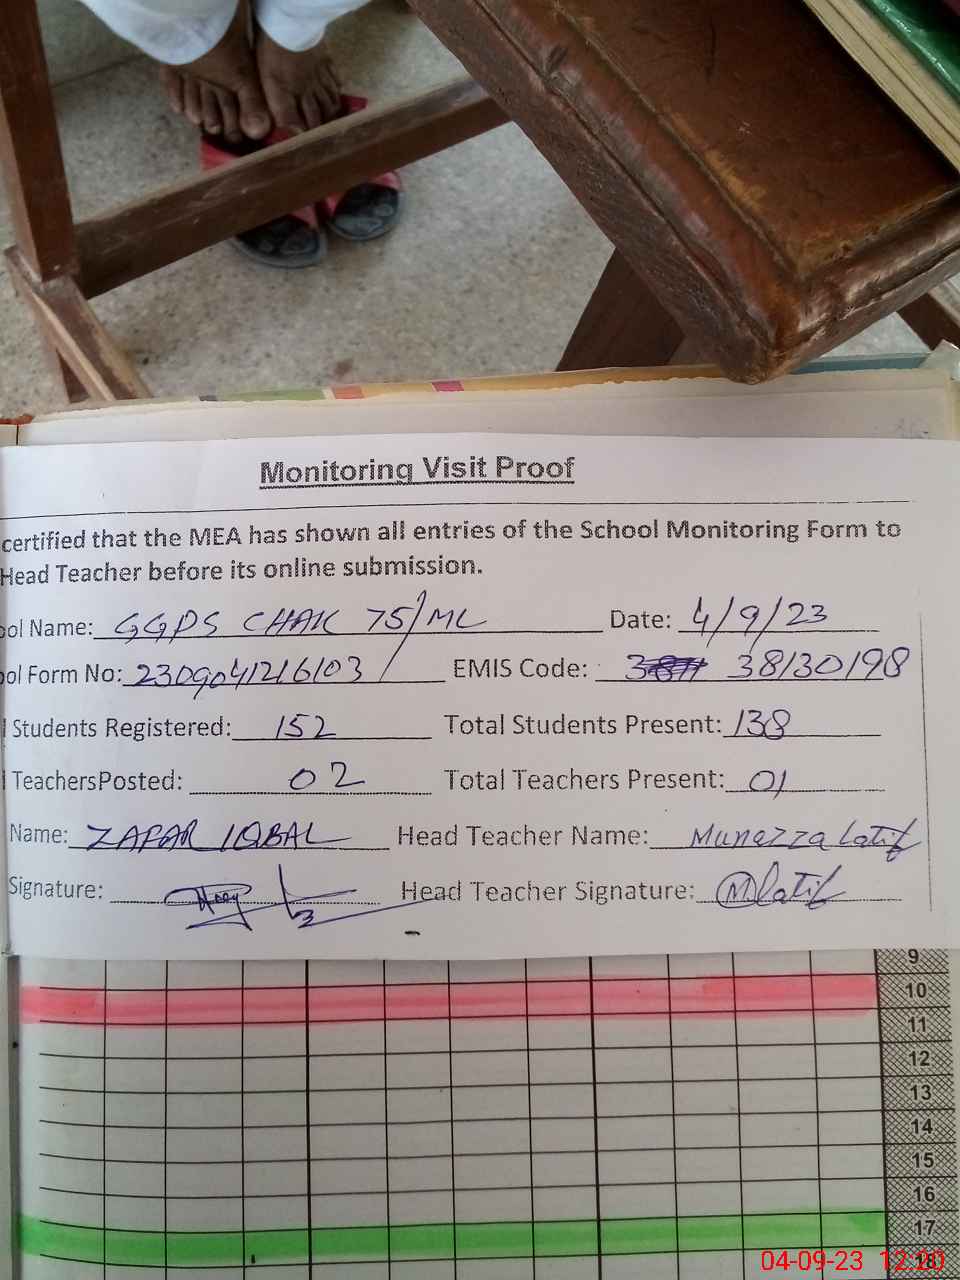 Monitoring Visit Proof
certified that the MEA has shown all entries of the School Monitoring Form to
Head Teacher before its online submission.
ool Name: GGPS CHAK 75/ML Date: 4/9/23
ool Form No: 2309041216103 EMIS Code: 38130198
l Students Registered: 152 Total Students Present: 138
l TeachersPosted: 02 Total Teachers Present: 01
Name: ZAFAR IQBAL Head Teacher Name: Munazza Latif
Signature: Head Teacher Signature: M.Latif
9
10
11
12
13
14
15
16
17
18
04-09-23 12:20